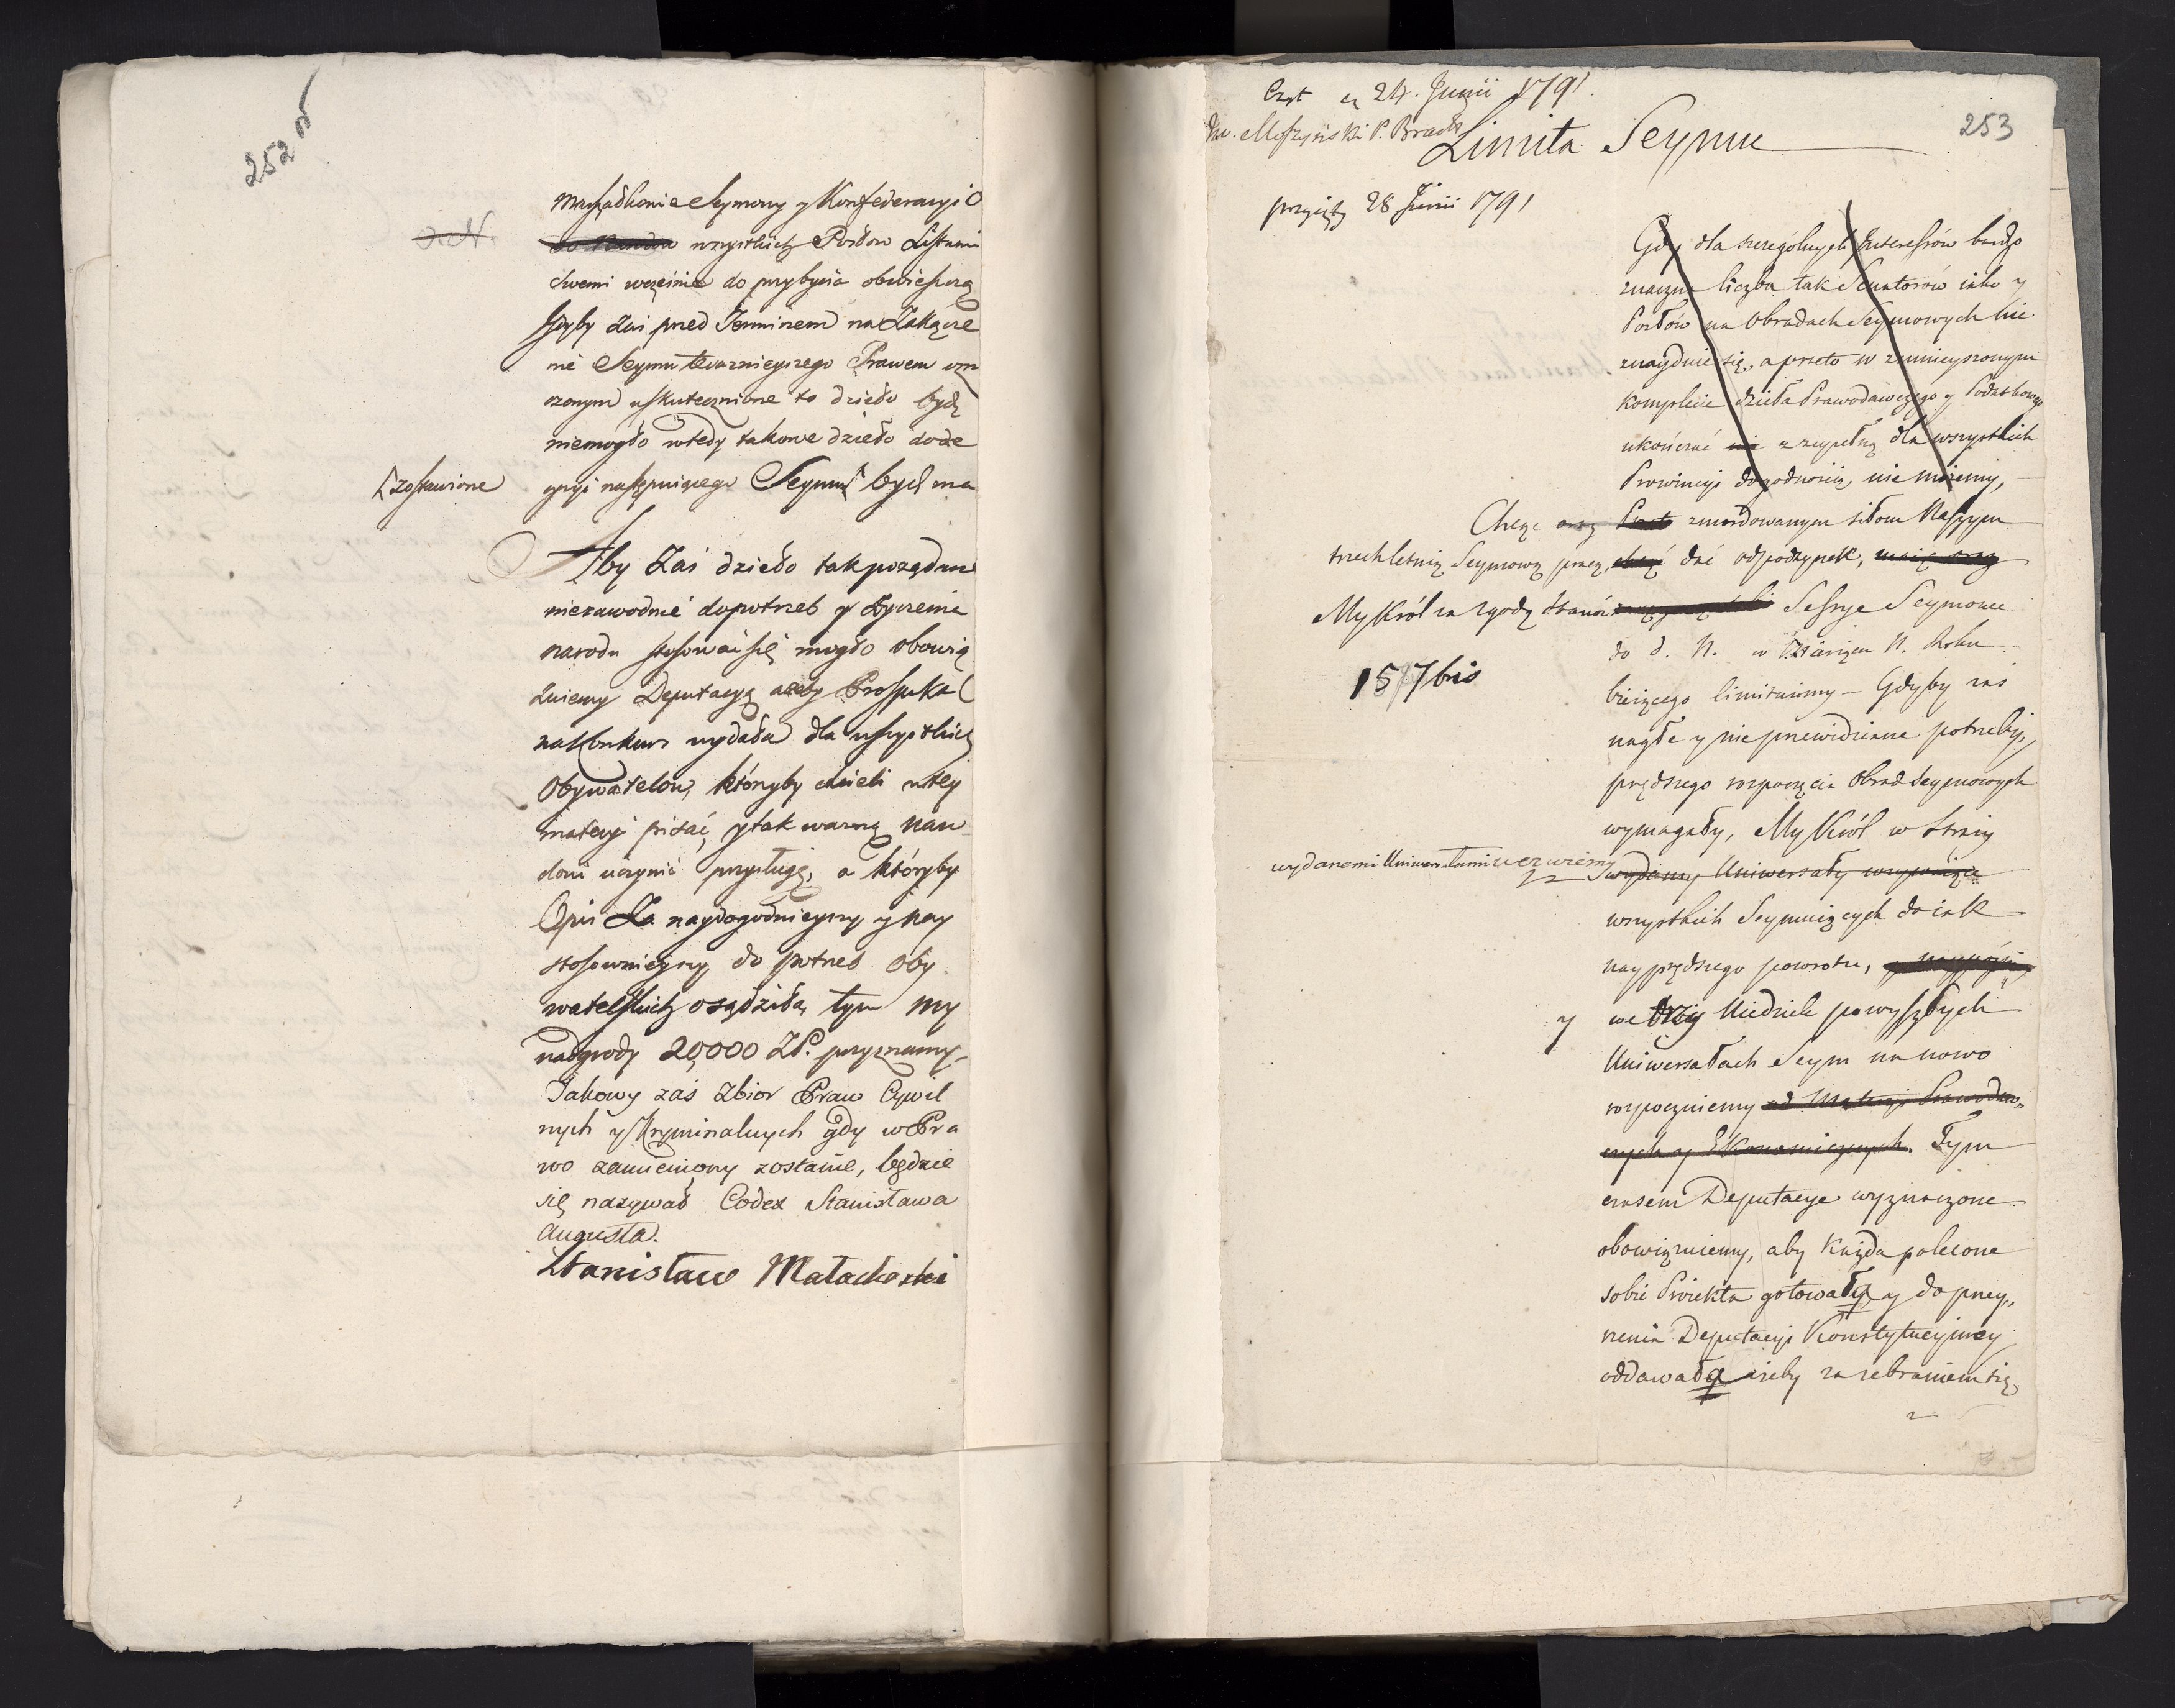 252 v
Marszałkowie Seymowy y Konfederacyi O
do Narodu wszystkich Posłow Listami
d. N.
swemi wcześnie do przybycia obwieszczą
Gdyby zaś przed Terminem na Zakącze
nie Seymu teraznieyszego Prawem ozn
czonym uskutecznione to dzieło bydź
niemogło wtedy takowe dzieło do de
cyzyi następuiącego Seymu bydź ma
zostawione
Aby Zaś dzieło tak pożądane
niezawodnie do potrzeb y życzenia
narodu stosować się mogło obowią
zuiemy Deputacyą ażeby Prospekt
na Konkurs wydała dla wszystkich
Obywatelow, którzyby chcieli w tey
materyi pisać, y tak ważną naro
dowi uczynić przysługę, a któryby
Opis Za naydogodnieyszy y nay
stosownieyszy do potrzeb oby
watelskich osądziła, tym my
nadgrody 20,000 Zł. przyznamy.
Takowy zaś zbior Praw Cywil
nych y Kryminalnych gdy w Pra
wo zamieniony zostanie, będzie
się nazywał Codex Stanisława
Augusta.
Stanisław Małachowski
253
Czyt 24. Junii 1791.
Moszyński P. Bracł.
Limita Seymu
przyięty 28 Junii 1791
Gdy dla szczególnych Interessów bardzo
znaczna liczba tak Senatorów iako y
Posłów na Obradach Seymowych nie
znayduie się, a przeto w zmnieyszonym
komplecie dzieła Prawodawczego y Podatkowego
ukończać z zupełną dla wszystkich
Prowincyi dogodnością nie możemy,
Chcąc zmordowanym siłom Naszym
trzechletnią Seymową pracą, dać odpoczynek,
My Król za zgodą Stanów Sessye Seymowe
do d. N. w Miesiącu N. Roku
157 bis
bieżącego limituiemy – Gdyby zaś
nagłe y nieprzewidziane potrzeby,
prędszego rozpoczęcia Obrad Seymowych
wymagały, My Król w Straży
wydanemi Uniwersałami wezwiemy
wydamy Uniwersały wzywaiące
wszystkich Seymuiących do iak
nayprędszego powrotu,
y we trzy Niedziele po wyszłych
Uniwersałach Seym na nowo
rozpoczniemy od Materyi Prawodaw,,
czych y Ekonomicznych. Tym
czasem Deputacye wyznaczone
obowiązuiemy, aby każda polecone
sobie Proiekta gotowały y do przey,,
rzenia Deputacyi Konstytucyiney
oddawały ażeby za zebraniem się